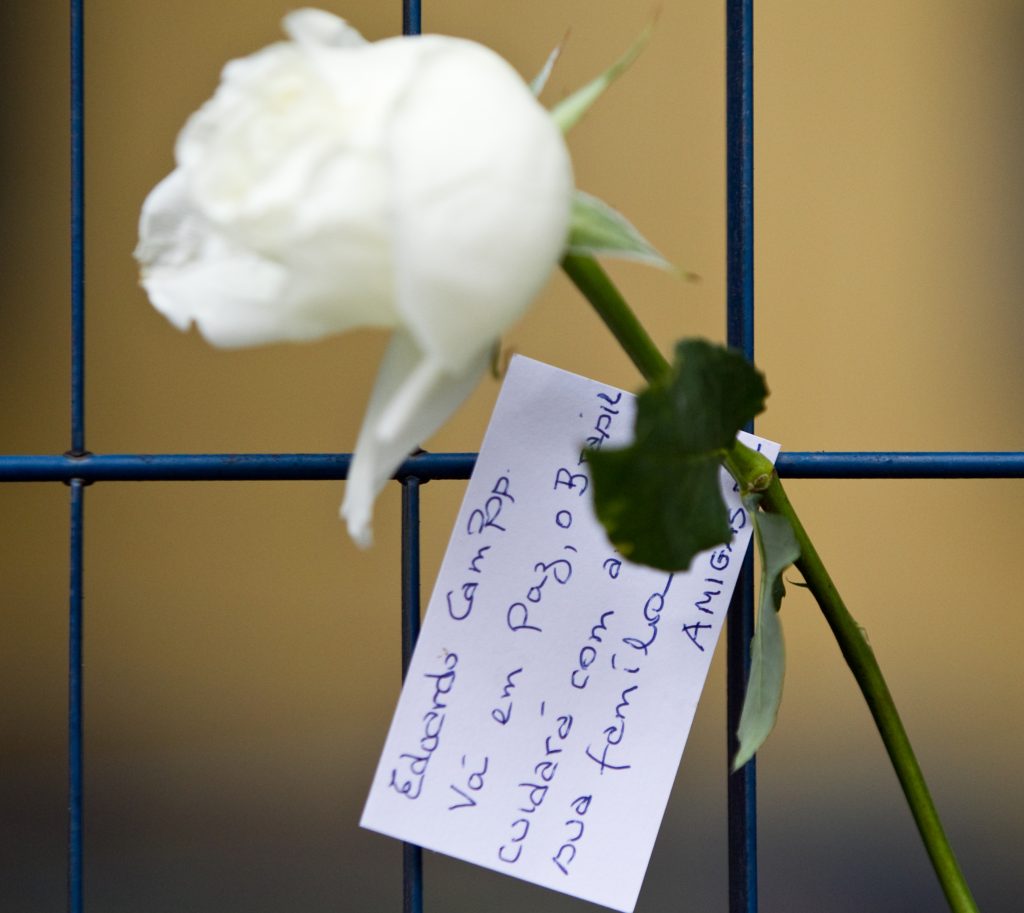 Eduardo Campop.
Vá em Paz, o Brapil
cuidará com a
sua família
AMIGAS